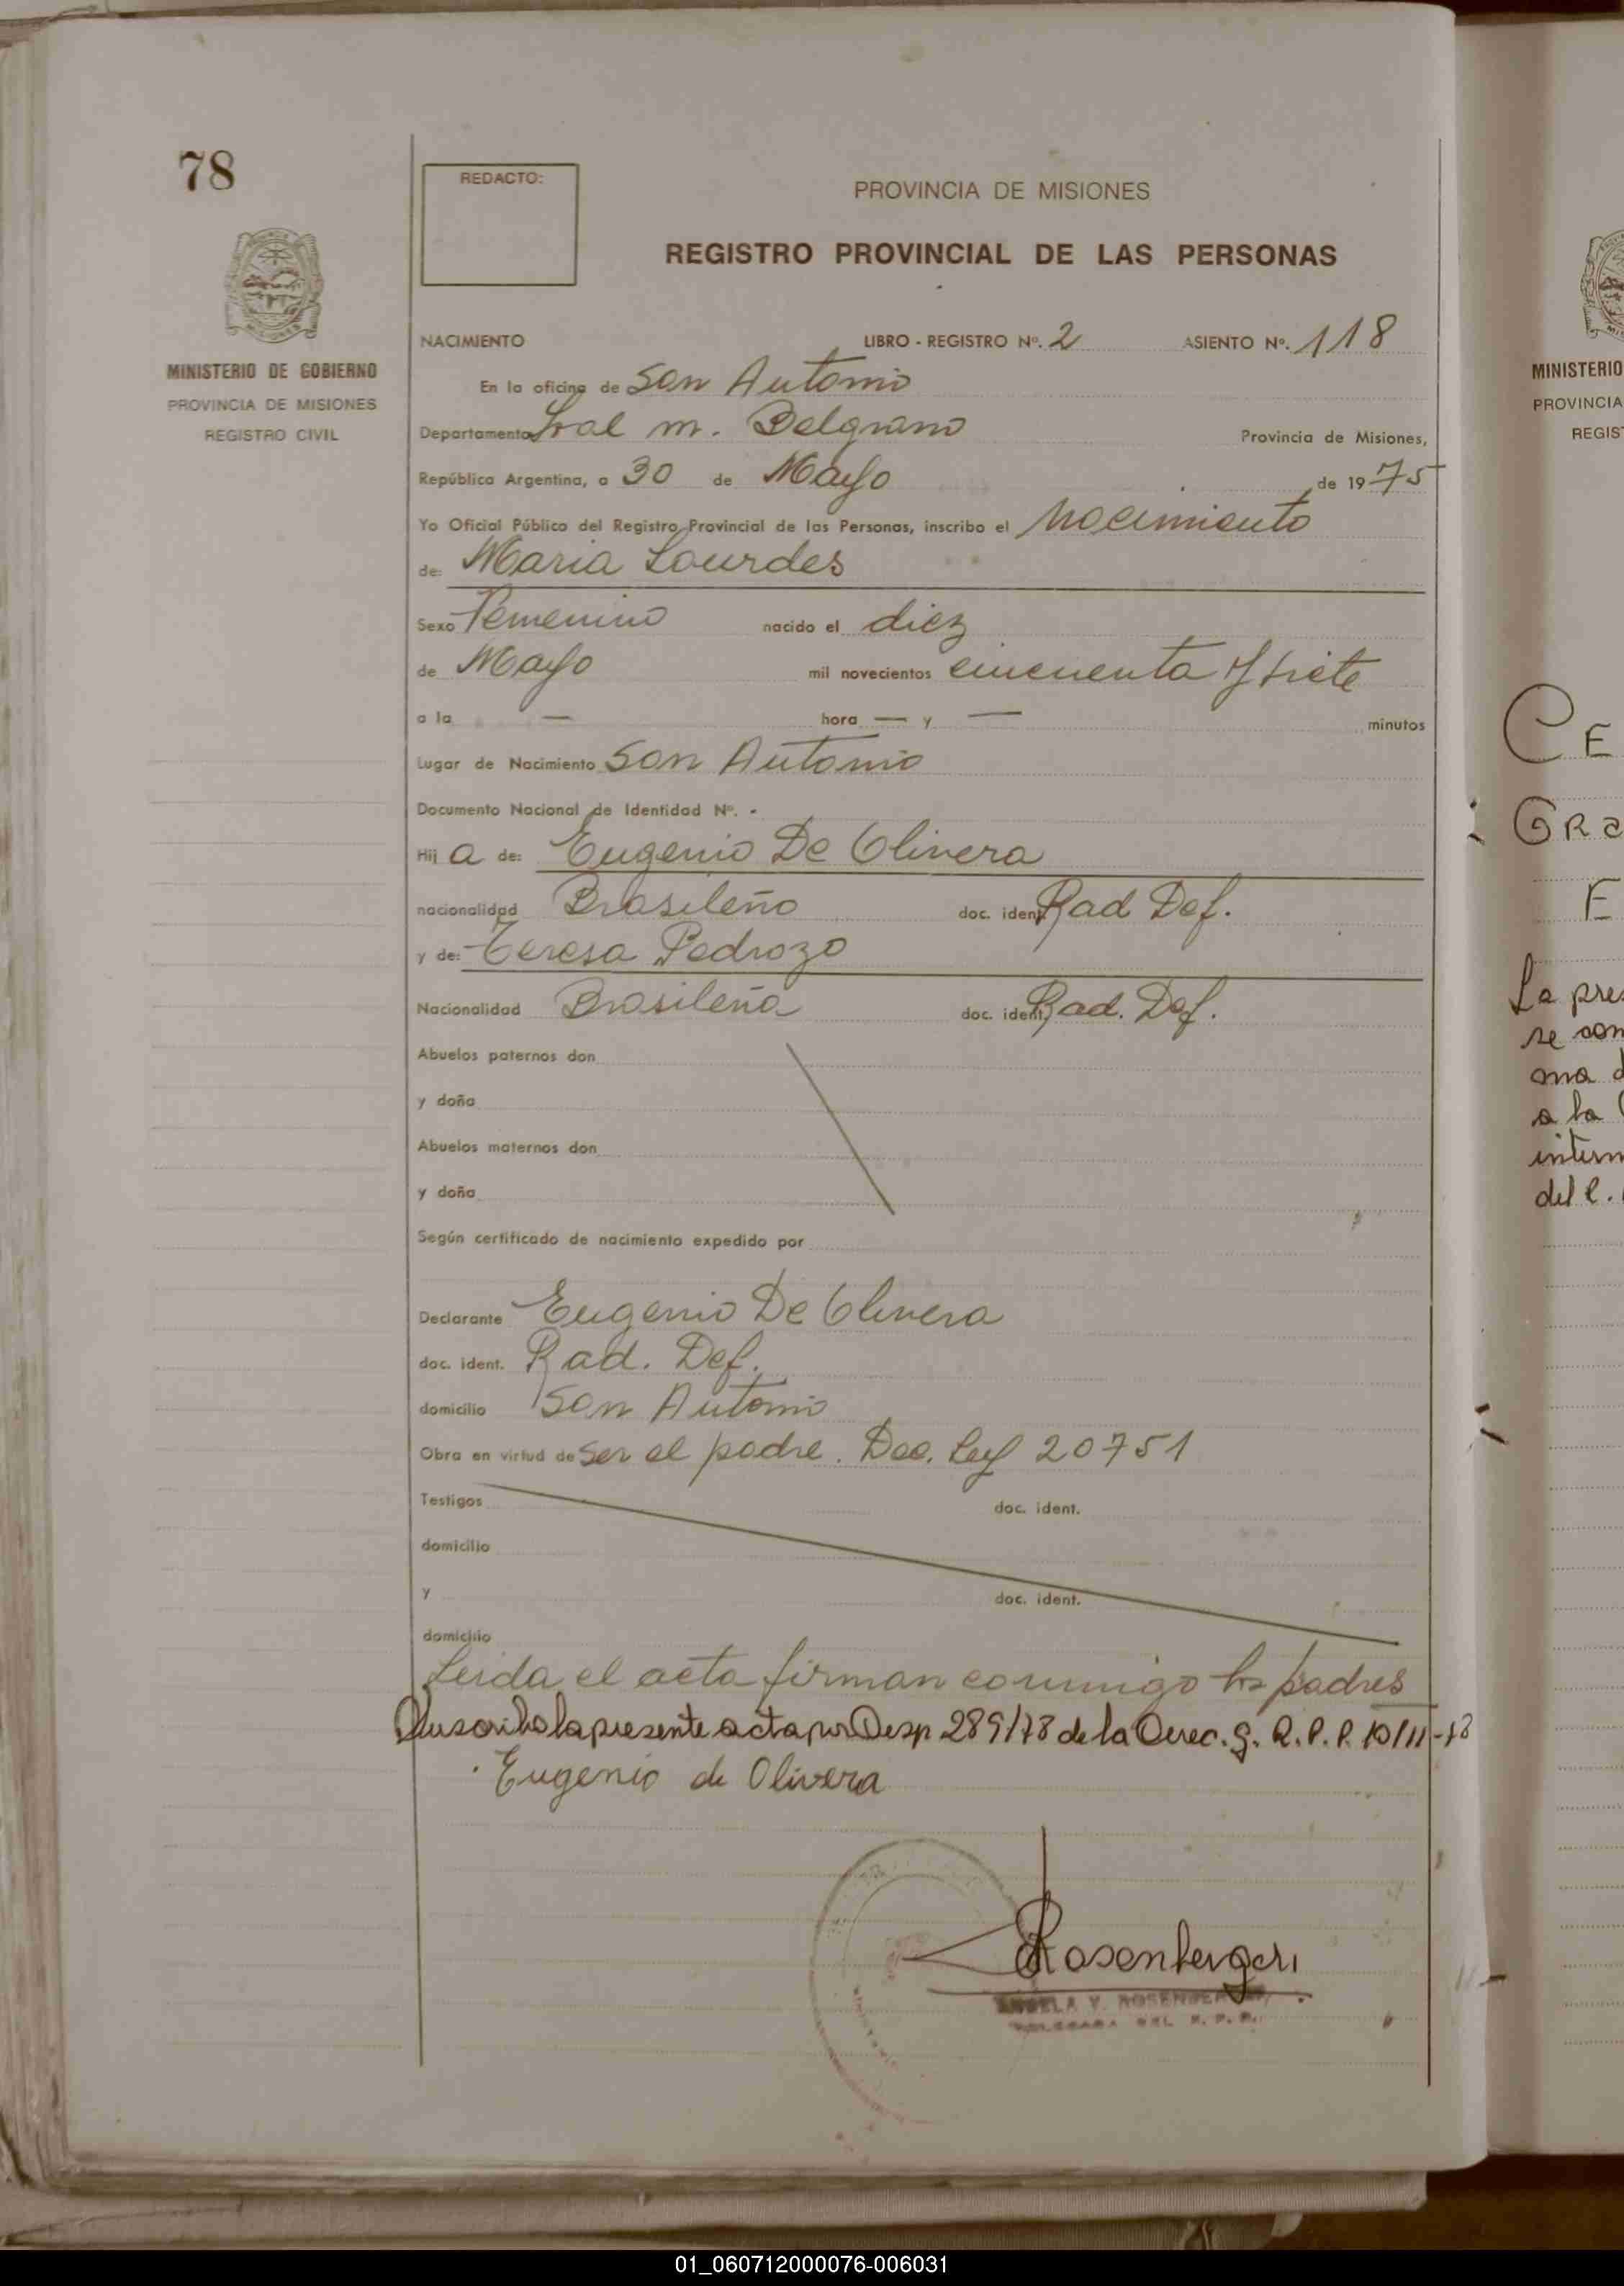 78
REDACTO:
PROVINCIA DE MISIONES
REGISTRO PROVINCIAL DE LAS PERSONAS
MINISTERIO DE GOBIERNO
PROVINCIA DE MISIONES
REGISTRO CIVIL
NACIMIENTO LIBRO - REGISTRO Nº. 2 ASIENTO Nº. 118
En la oficina de San Antonio
Departamento Gral M. Belgrano Provincia de Misiones,
República Argentina, a 30 de Mayo de 1975
Yo Oficial Público del Registro Provincial de las Personas, inscribo el Nacimiento
de: Maria Lourdes
Sexo Femenino nacido el diez
de Mayo mil novecientos cincuenta y siete
a la — hora — y — minutos
Lugar de Nacimiento San Antonio
Documento Nacional de Identidad Nº. -
Hij a de: Eugenio De Olivera
nacionalidad Brasileño doc. ident. Rad Def.
y de: Teresa Pedrozo
Nacionalidad Brasileña doc. ident. Rad. Def.
Abuelos paternos don
y doña
Abuelos maternos don
y doña
Según certificado de nacimiento expedido por
Declarante Eugenio De Olivera
doc. ident. Rad. Def.
domicilio San Antonio
Obra en virtud de Ser el padre. Dec. Ley 20751
Testigos doc. ident.
domicilio
y doc. ident.
domicilio
Leida el acta firman conmigo los padres
Suscribo la presente acta por Desp 289/78 de la Direc. G. R. P. P. 10/11-78
Eugenio de Olivera
Rosenberger
ANGELA V. ROSENBERGER
DELEGADA DEL R. P. P.
MINISTERIO
PROVINCIA
REGIS
CE
GRa
F
La pres
se con
ma d
a la
intern
del
01_060712000076-006031